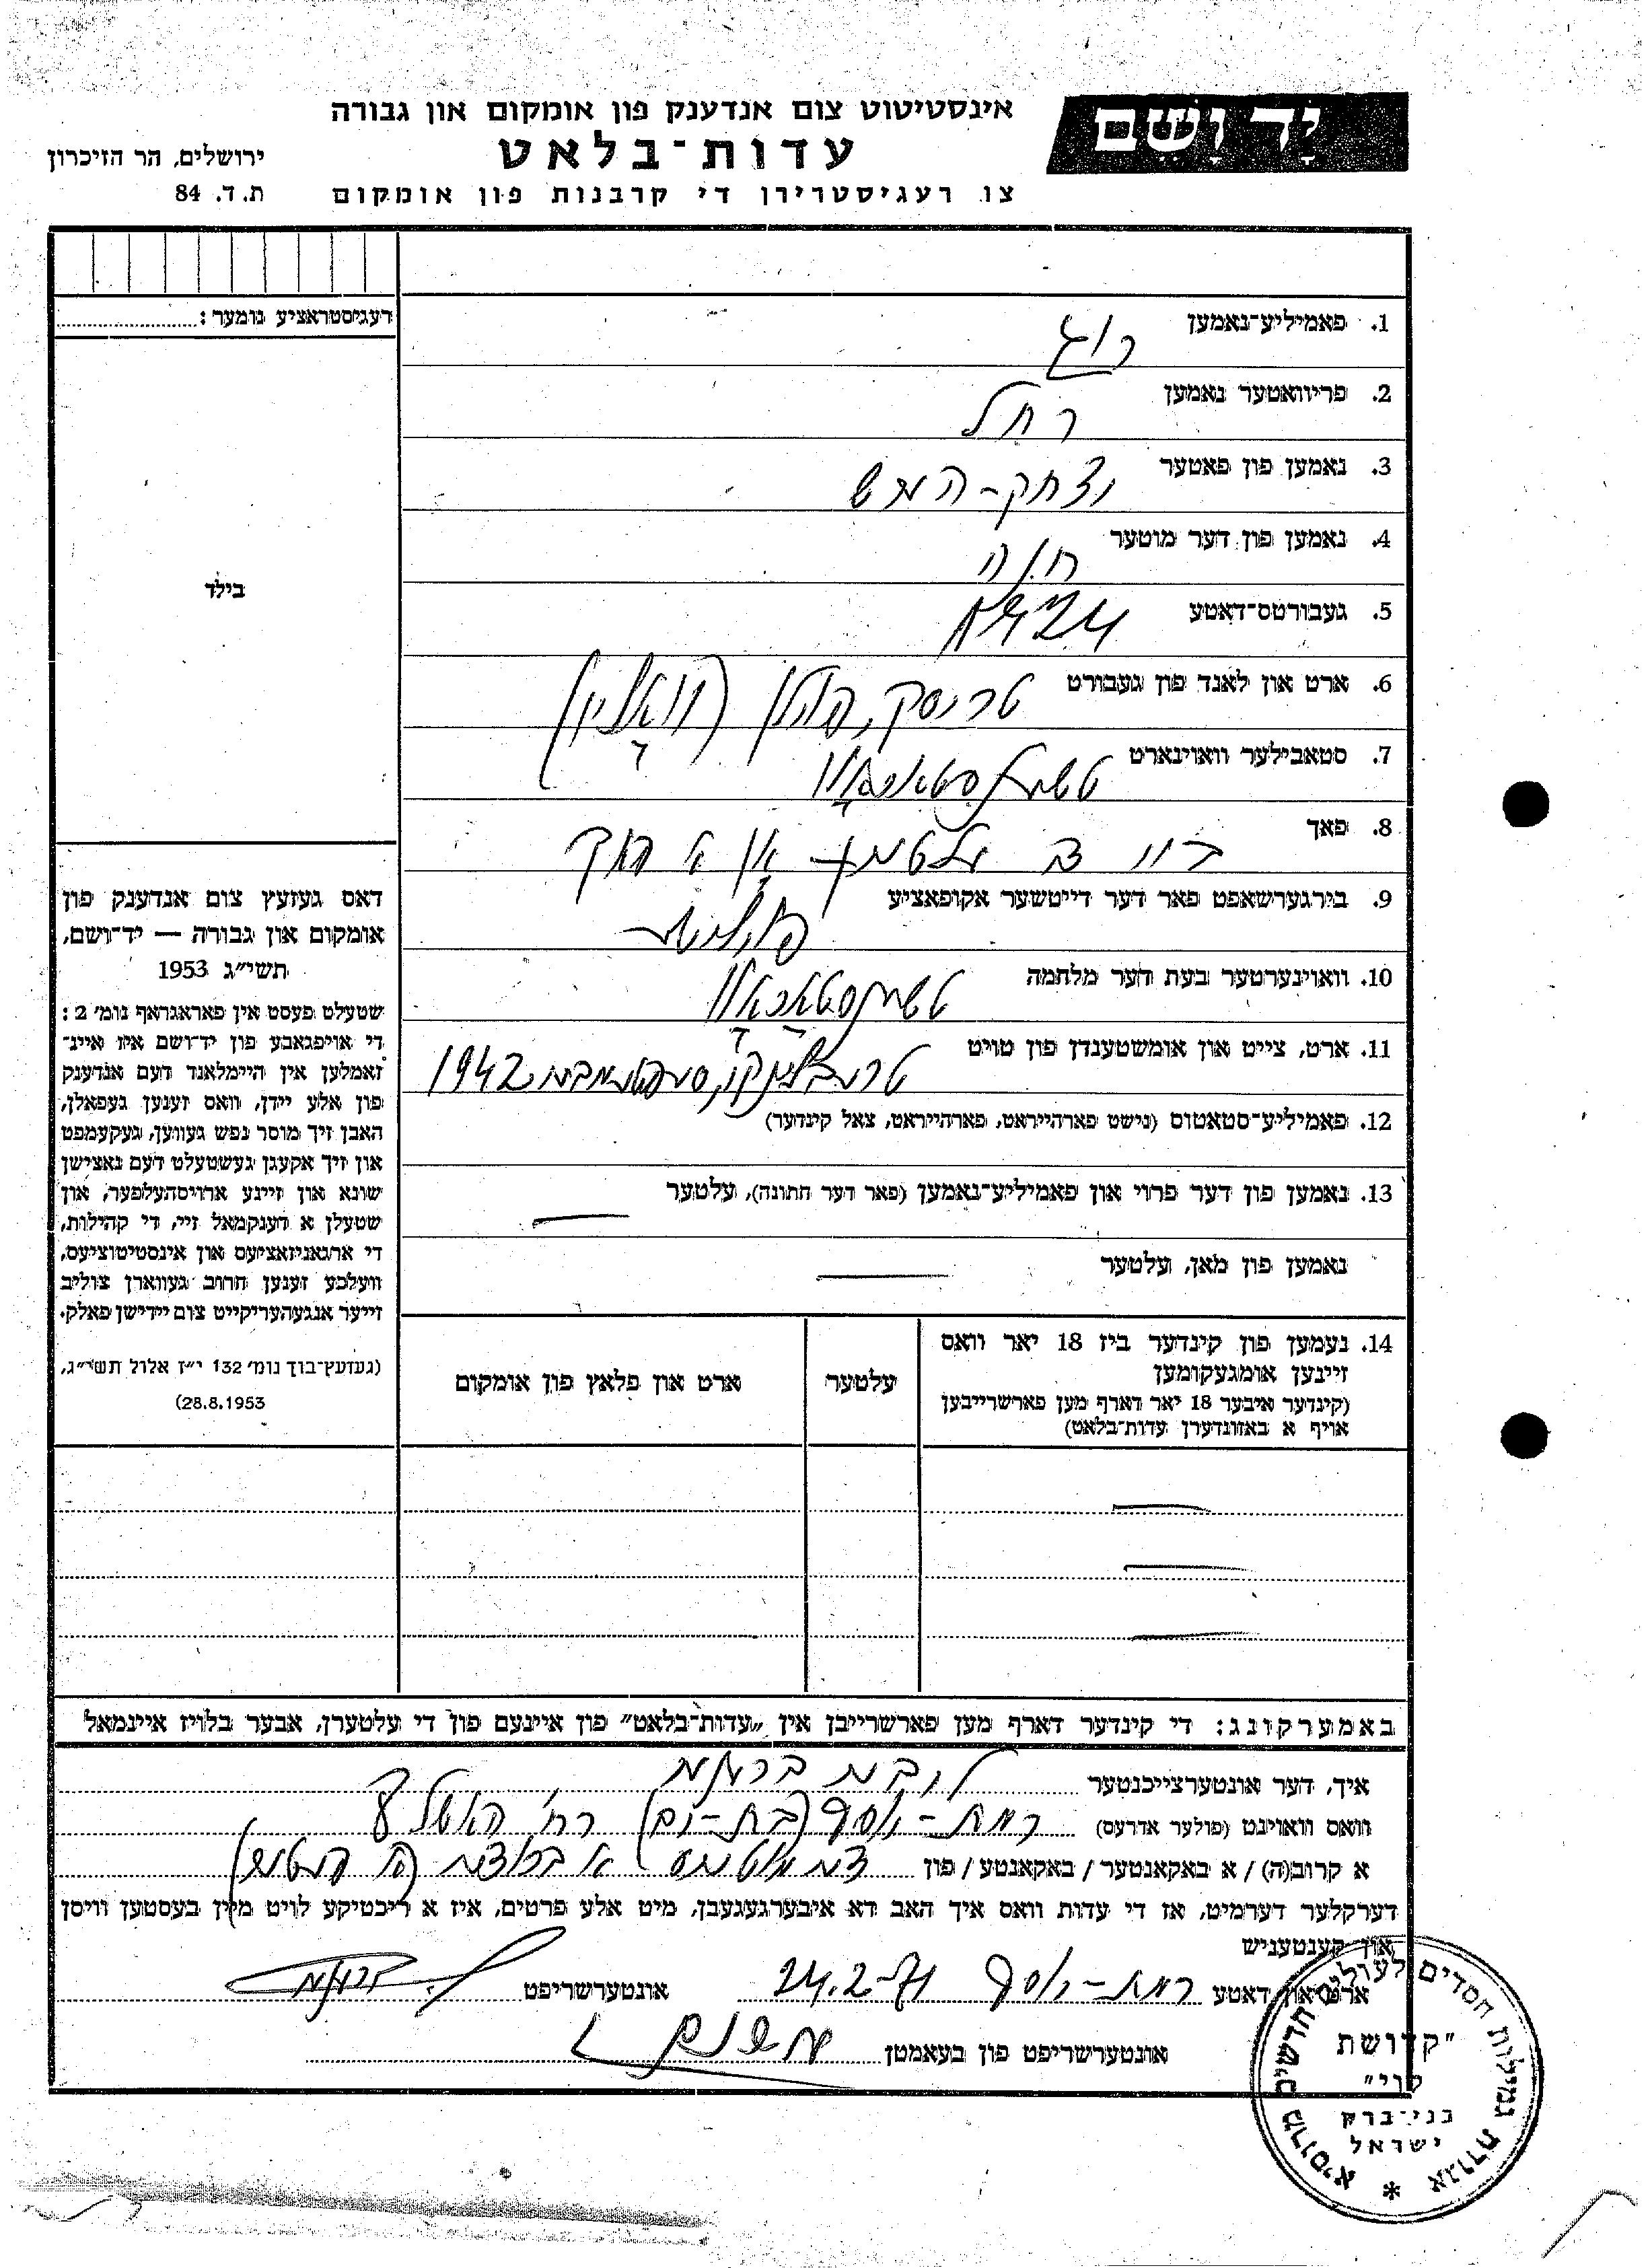 יד ושם
אינסטיטוט צום אנדענק פון אומקום און גבורה
עדות־בלאט
צו רעגיסטרירן די קרבנות פון אומקום
ירושלים, הר הזיכרון
ת.ד. 84
רעגיסטראציע נומער:
בילד
דאס געזעץ צום אנדענק פון
אומקום און גבורה — יד־ושם,
תשי״ג 1953
שטעלט פעסט אין פאראגראף נומ׳ 2:
די אויפגאבע פון יד־ושם איז איינ־
זאמלען אין היימלאנד דעם אנדענק
פון אלע יידן, וואס זענען געפאלן,
האבן זיך מוסר נפש געווען, געקעמפט
און זיך אקעגן געשטעלט דעם נאצישן
שונא און זיינע ארויסהעלפער, און
שטעלן א דענקמאל זיי, די קהילות,
די ארגאניזאציעס און אינסטיטוציעס,
וועלכע זענען חרוב געווארן צוליב
זייער אנגעהעריקייט צום יידישן פאלק.
(געזעץ־בוך נומ׳ 132 י״ז אלול תשי״ג,
28.8.1953)
1. פאמיליע־נאמען
2. פריוואטער נאמען רחל
3. נאמען פון פאטער יצחק-
4. נאמען פון דער מוטער חנה
5. געבורטס־דאטע 1924
6. ארט און לאנד פון געבורט טריסק, פוילן (וואלין)
7. סטאבילער וואוינארט טשענסטאכאוו
8. פאך ביי
9. בירגערשאפט פאר דער דייטשער אקופאציע פויליש
10. וואוינערטער בעת דער מלחמה טשענסטאכאוו
11. ארט, צייט און אומשטענדן פון טויט טרעבלינקע, סעפטעמבער 1942
12. פאמיליע־סטאטוס (נישט פארהייראט, פארהייראט, צאל קינדער)
13. נאמען פון דער פרוי און פאמיליע־נאמען (פאר דער חתונה), עלטער
נאמען פון מאן, עלטער
14. נעמען פון קינדער ביז 18 יאר וואס
זיינען אומגעקומען
(קינדער איבער 18 יאר דארף מען פארשרייבן
אויף א באזונדערן עדות־בלאט)
עלטער
ארט און פלאץ פון אומקום
באמערקונג: די קינדער דארף מען פארשרייבן אין „עדות־בלאט״ פון איינעם פון די עלטערן, אבער בלויז איינמאל
איך, דער אונטערצייכנטער
וואס וואוינט (פולער אדרעס) רמת-יוסף (בת-ים) רח׳
א קרוב(ה) / א באקאנטער / באקאנטע / פון
דערקלער דערמיט, אז די עדות וואס איך האב דא איבערגעגעבן, מיט אלע פרטים, איז א ריכטיקע לויט מיין בעסטען וויסן
און קענטעניש
ארט און דאטע רמת-יוסף 24.2-71 אונטערשריפט
אונטערשריפט פון בעאמטן
אגודת גמילות חסדים לעולים חדשים מרוסיא *
״קדושת
לוי״
בני־ברק
ישראל